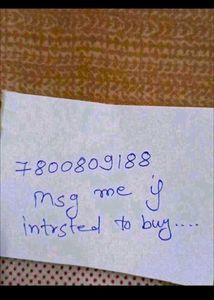 7800809188
Msg me if
intrsted to buy....